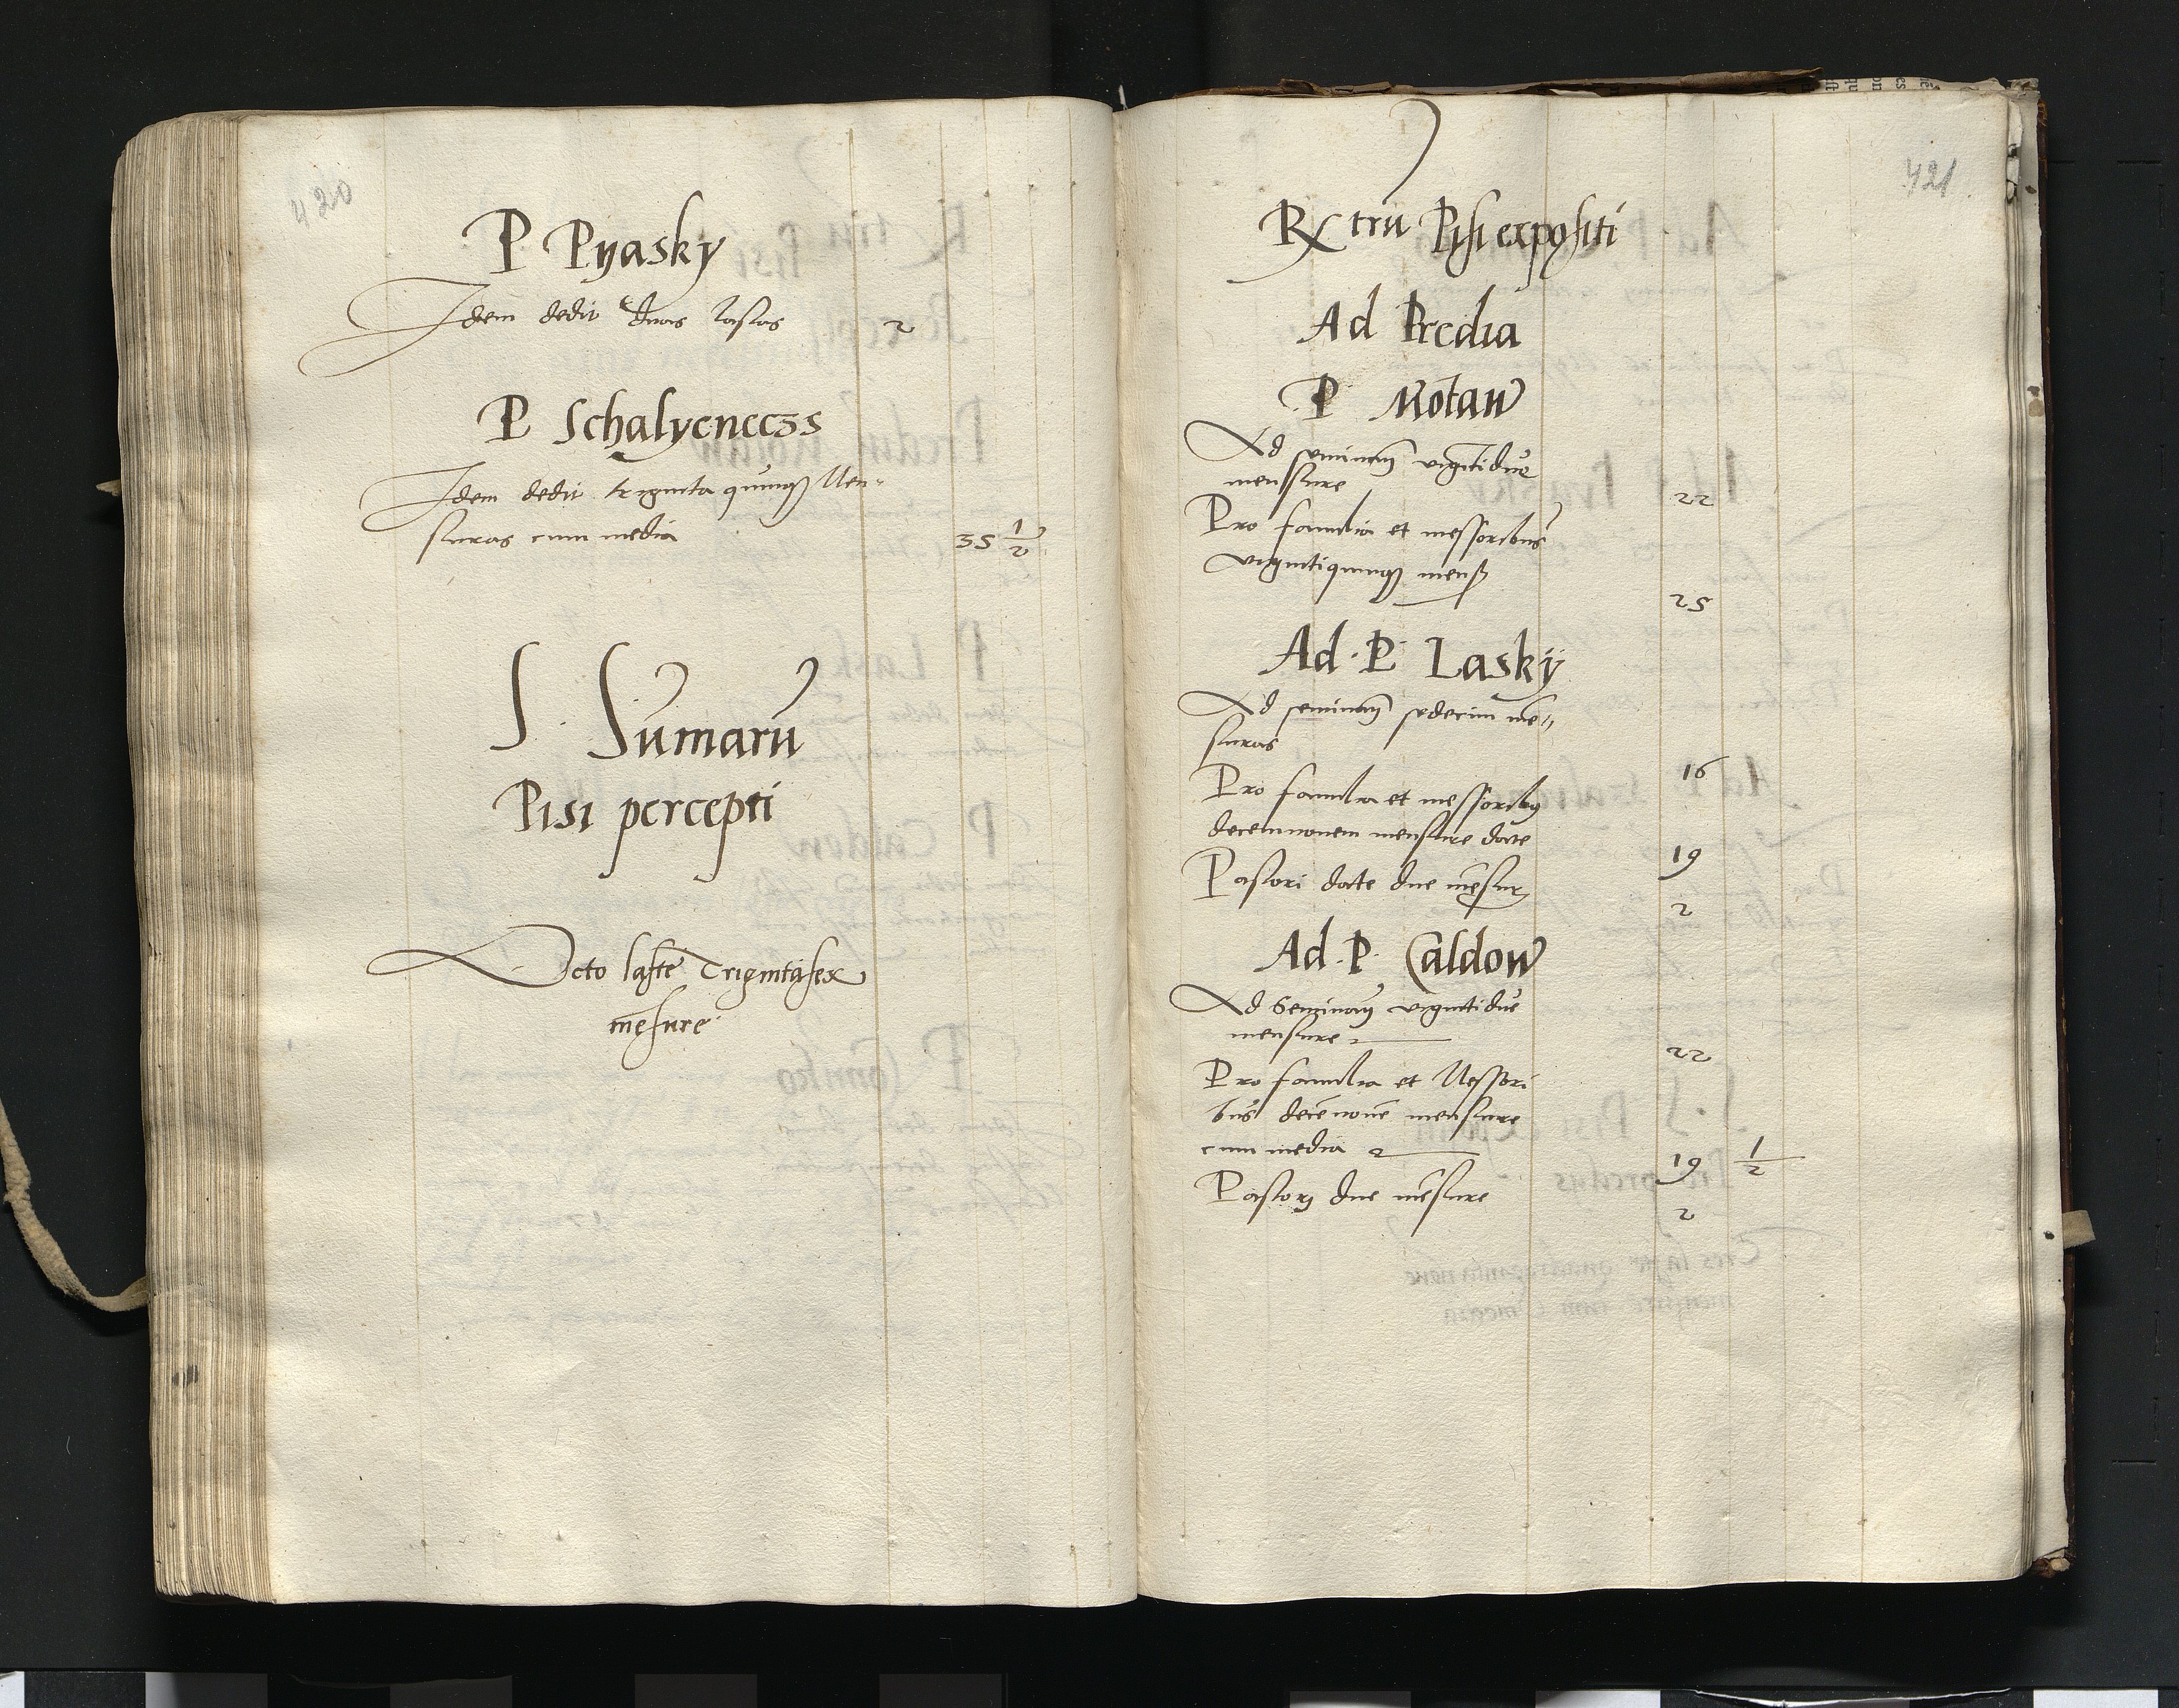 420
P Pyasky
Idem dedit duas lastas 2
P Schalyeneczs
Idem dedit triginta quinqꝫ Men-
suras cum media 35 1/2
S Sumarū
Pisi percepti
Octo lastē Trigintasex
mēsure
421
Rx trū Pisi expositi
Ad Predia
P Motaw
Ad seminaꝫ vigīntidue
menssure 22
Pro familia et messoribus
vigintiquinqꝫ mens 25
Ad P Lasky
Ad seminaꝫ sedecim mē„
suras 16
Pro familia et messoribꝫ
decemnouem mensure date 19
Pastori date due mēsur 2
Ad P Caldow
Ad Seminaꝫ vigintidue
mensure 22
Pro familia et Messori
bus decēnouē mensure
cum media 19 1/2
Pastorj due mēsure 2